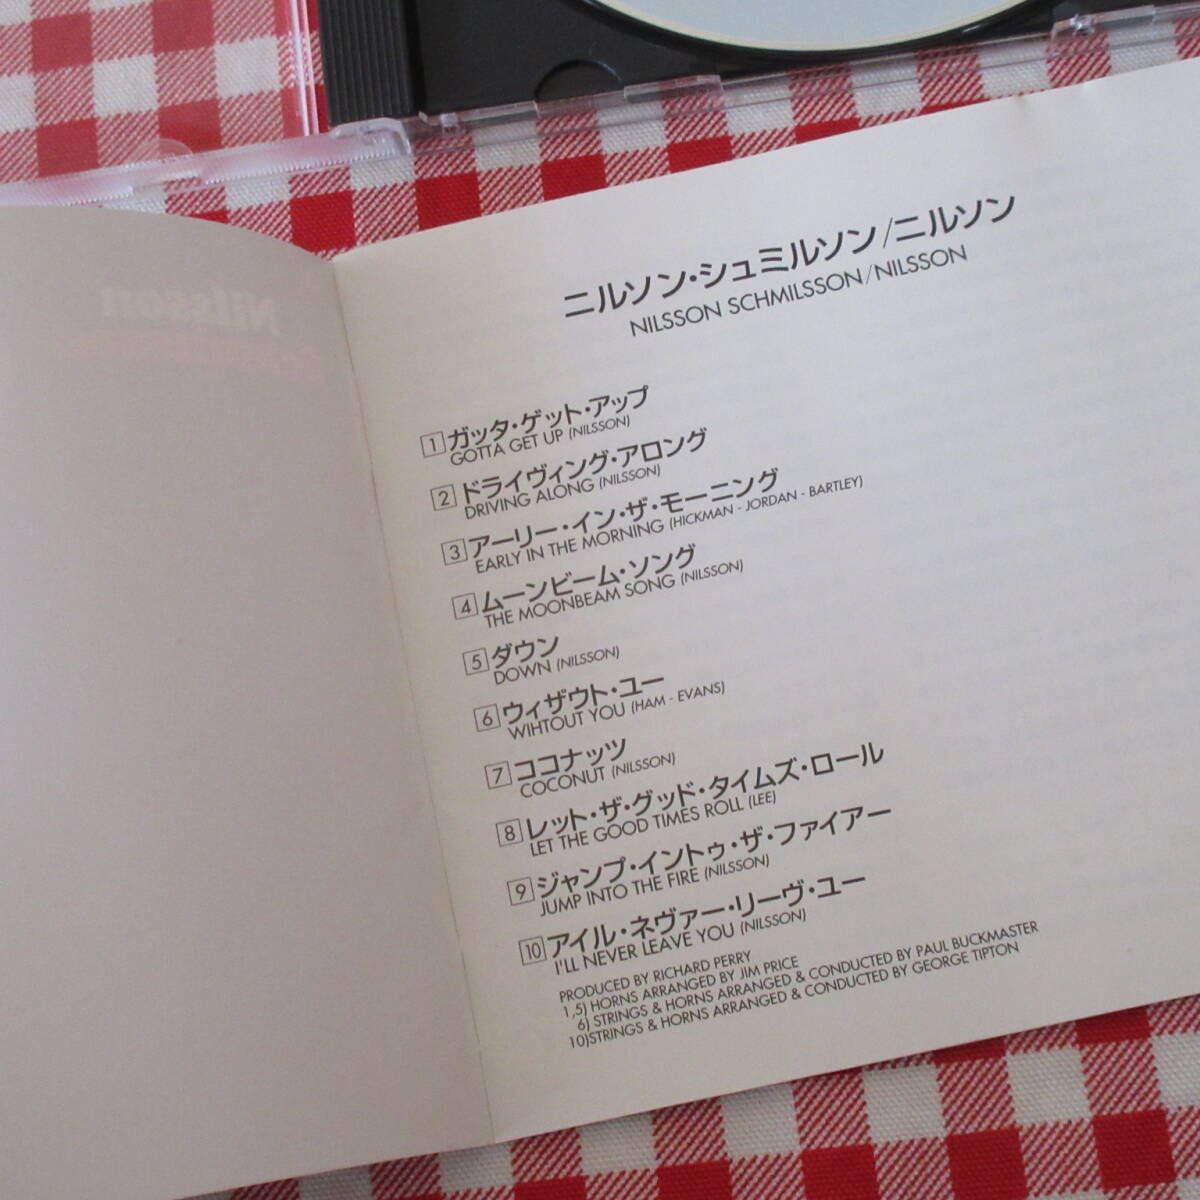 ニルソン・シュミルソン/ニルソン
NILSSON SCHMILSSON/NILSSON
1 ガッタ・ゲット・アップ
GOTTA GET UP (NILSSON)
2 ドライヴィング・アロング
DRIVING ALONG (NILSSON)
3 アーリー・イン・ザ・モーニング
EARLY IN THE MORNING (HICKMAN - JORDAN - BARTLEY)
4 ムーンビーム・ソング
THE MOONBEAM SONG (NILSSON)
5 ダウン
DOWN (NILSSON)
6 ウィザウト・ユー
WIHTOUT YOU (HAM - EVANS)
7 ココナッツ
COCONUT (NILSSON)
8 レット・ザ・グッド・タイムズ・ロール
LET THE GOOD TIMES ROLL (LEE)
9 ジャンプ・イントゥ・ザ・ファイアー
JUMP INTO THE FIRE (NILSSON)
10 アイル・ネヴァー・リーヴ・ユー
I'LL NEVER LEAVE YOU (NILSSON)
PRODUCED BY RICHARD PERRY
1,5) HORNS ARRANGED BY JIM PRICE
6) STRINGS & HORNS ARRANGED & CONDUCTED BY PAUL BUCKMASTER
10)STRINGS & HORNS ARRANGED & CONDUCTED BY GEORGE TIPTON
Nilsson